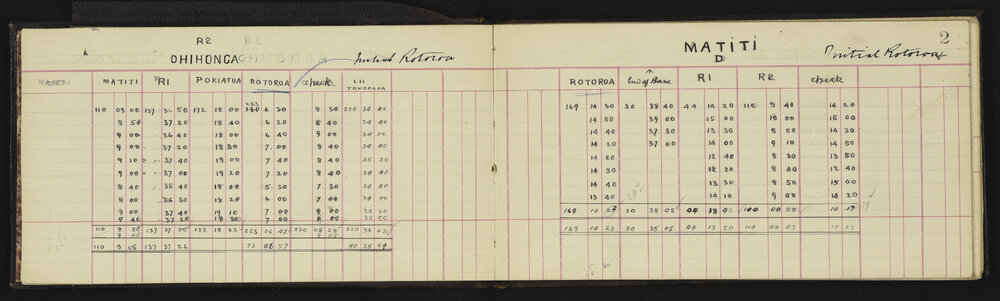 R2
OHIHONGA
Initial Rotoroa
MATITI R1 POKIATUA ROTOROA check LII
110 09 00 137 36 50 172 18 00 253 6 30 8 30 220 36 40
8 50 37 20 18 40 6 20 8 40 34 40
9 00 36 40 18 00 6 40 9 00 34 00
9 00 37 20 18 30 7 00 8 40 34 40
9 10 37 40 19 00 7 40 8 40 35 30
9 00 37 00 19 20 7 20 8 40 34 00
8 40 35 40 18 00 5 30 7 30 34 40
8 00 36 30 18 20 6 00 8 00 34 40
9 00 37 40 19 10 7 00 9 00 35 20
9 40 37 20 18 30 7 00 8 00 35 00
110 8 56 137 37 00 172 18 253 06 290 08 28 220 34
9 05 8 05
110 9 05 137 37 26 73 08 57 40 35 04
2
MATITI
D
Initial Rotoroa
ROTOROA End of Base R1 R2 check
169 14 30 30 38 40 44 14 20 110 9 40 14 20
14 50 39 00 15 00 10 00 15 00
14 40 37 30 13 30 8 50 14 30
14 30 37 00 14 00 9 10 14 50
14 20 12 40 8 20 13 50
14 30 14 20 8 40 14 40
14 40 13 30 8 50 15 00
13 40 14 10 9 00 14 20
169 14 28 30 38 02 44 13 110 08 53 14 19
169 14 23 30 35 05 44 13 50 110 09 03 14 23